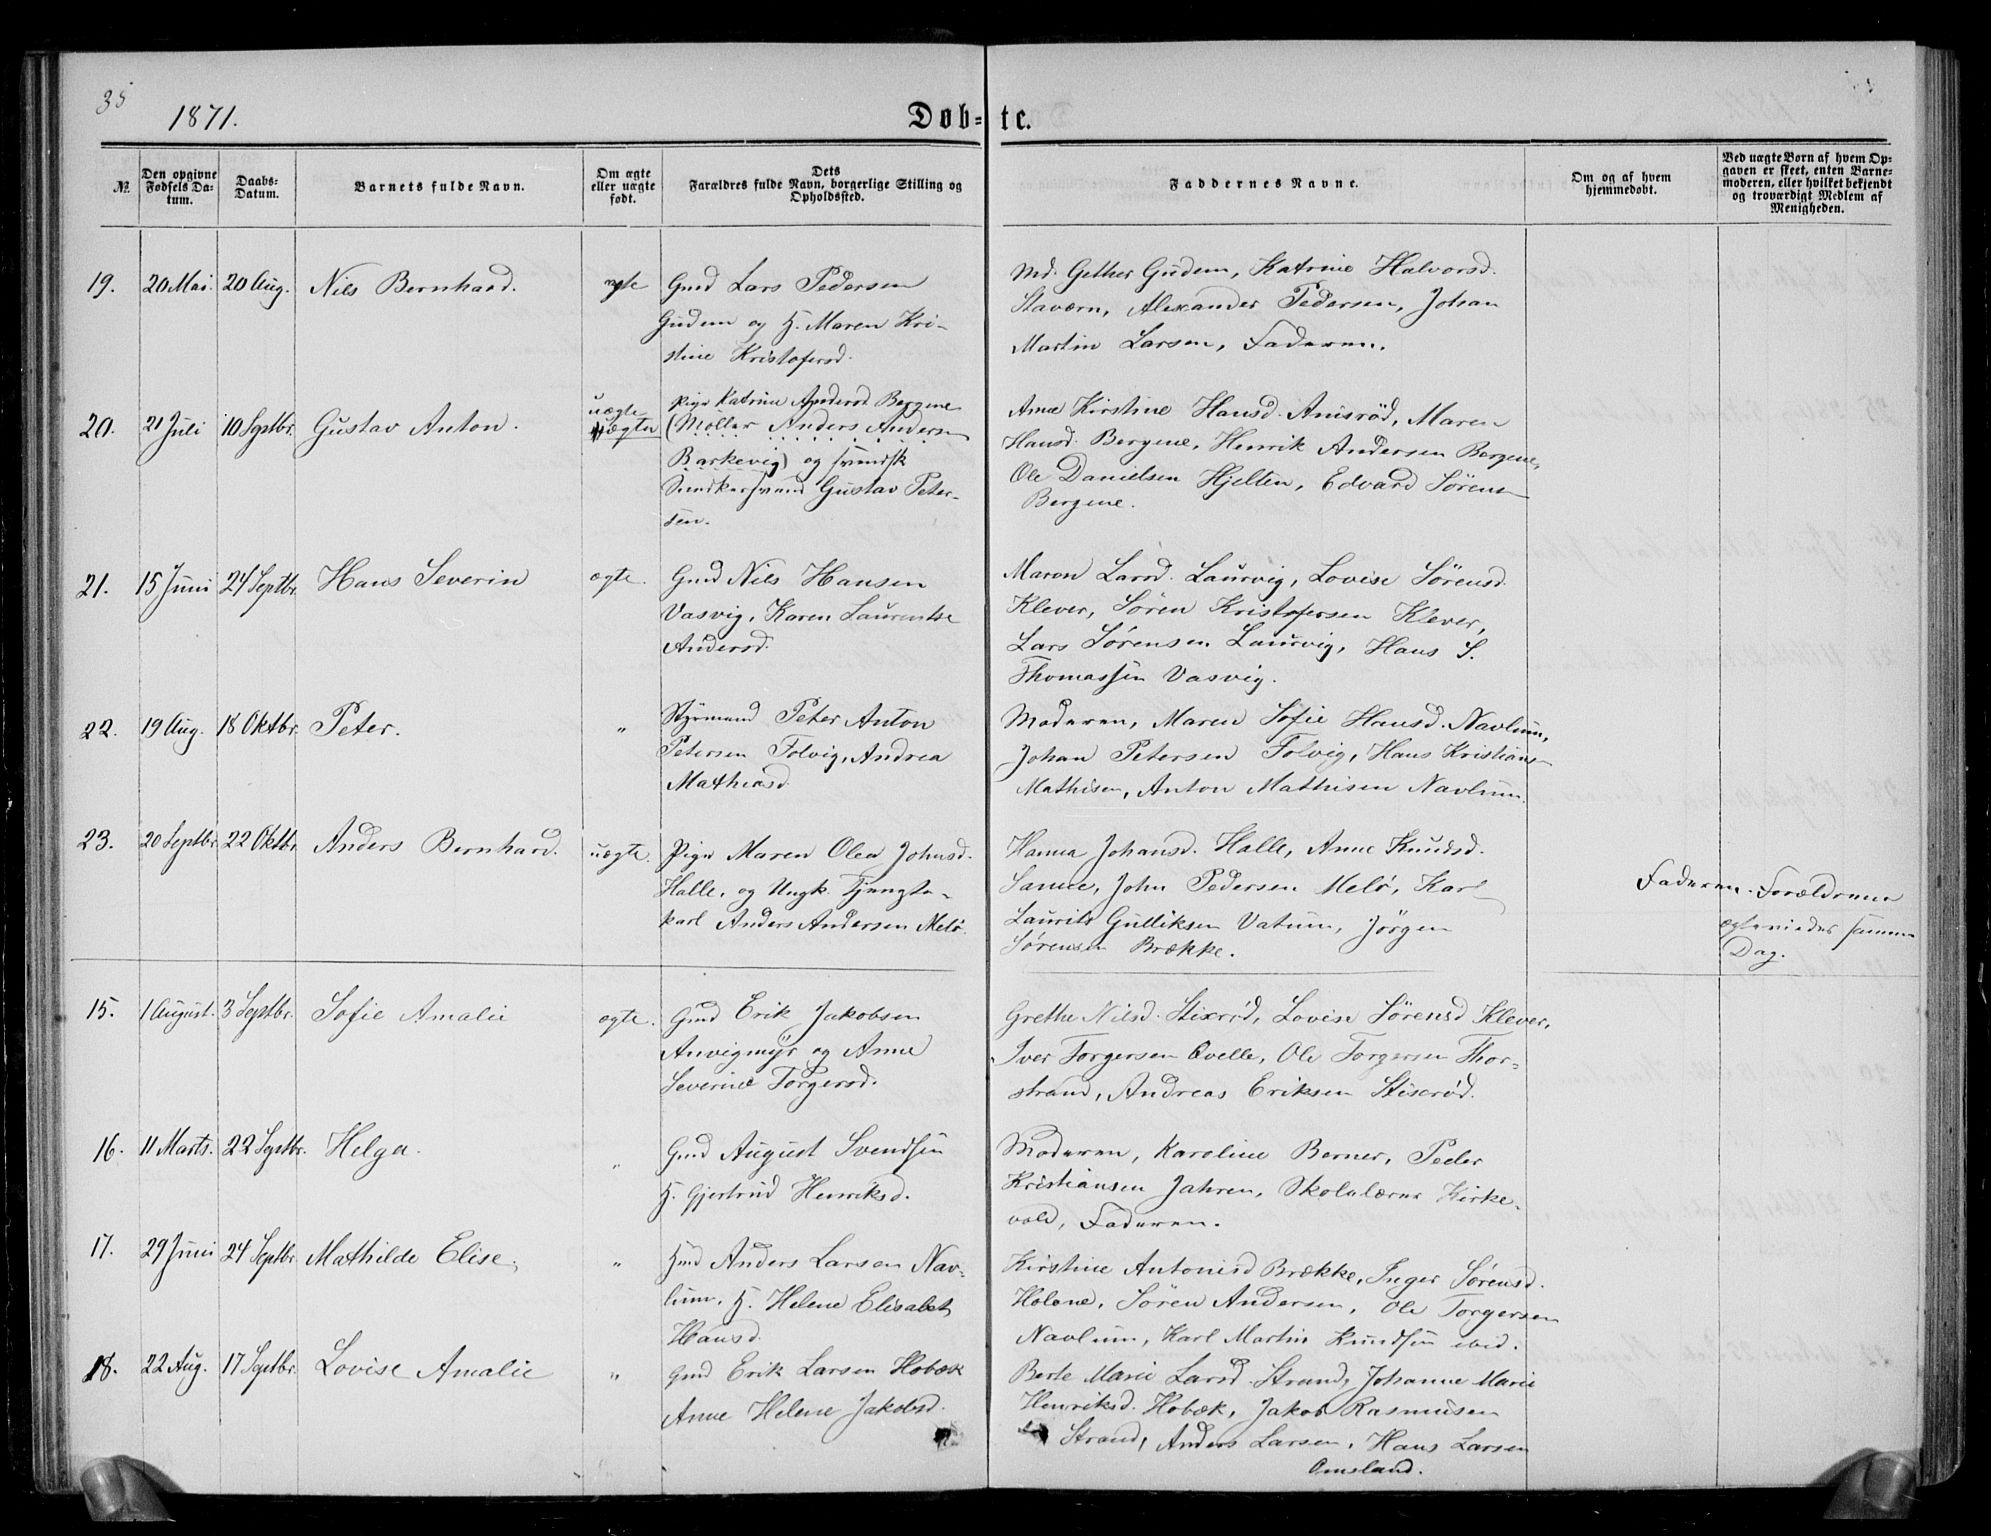 35
1871.
Døb- te.
№.
Den opgivne Fødsels Datum.
Daabs-Datum.
Barnets fulde Navn.
Om ægte eller uægte født.
Dets Forældres fulde Navn, borgerlige Stilling og Opholdssted.
Faddernes Navne.
Om og af hvem hjemmedøbt.
Ved uægte Børn af hvem Opgaven er skeet, enten Barnemoderen, eller hvilket bekjendt og troværdigt Medlem af Menigheden.
19. 20 Mai. 20 Aug. Nils Bernhard. ægte
Gmd Lars Pedersen
Gudem og H. Maren Kri-
stine Kristofersd.
Md. Gether Gudem, Katrine Halvorsd.
Stavern, Alexander Pedersen, Johan
Martin Larsen, Faderen.
20. 21 Juli 10 Septbr. Gustav Anton. uægte
Pige Katrine Andersd. Bergene
(Møller Anders Andersen
Barkevig) og svensk
Gustav Peter-
sen.
Anne Kirstine Hansd. Anisrød, Maren
Hansd. Bergene, Henrik Andersen Bergene,
Ole Danielsen Hjelten, Edvard Sørensen
Bergene.
21. 15 Juni 24 Septbr. Hans Severin ægte.
Gmd Nils Hansen
Vasvig, Karen Laurentse
Andersd.
Maren Larsd. Laurvig, Lovise Sørensd.
Klever, Søren Kristofersen Klever,
Lars Sørensen Laurvig, Hans S.
Thomassen Vasvig.
22. 19 Aug. 18 Oktbr. Peter. "
Styrmand Peter Anton
Petersen Folvig, Andrea
Mathiasd.
Moderen, Maren Sofie Hansd. Navlum,
Johan Petersen Folvig, Hans Kristian
Mathisen, Anton Mathisen Navlum.
23. 20 Septbr. 22 Oktbr. Anders Bernhard. uægte.
Pige Maren Olea Johnsd.
Halle, og Ungk. Tjenste-
karl Anders Andersen Melø.
Hanna Johansd. Halle, Anne Knudsd.
Sanne, John Pedersen Melø, Karl
Laurits Gulliksen Vatum, Jørgen
Sørensen Brække.
Faderen. Forældrene
ægteviedes samme
Dag.
15. 1 August. 3 Septbr. Sofie Amalie ægte.
Gmd Erik Jakobsen
Anvigmyr og Anne
Severine Torgersd.
Grethe Nilsd. Stixrød, Lovise Sørensd Klever,
Iver Torgersen Qvelle, Ole Torgersen Thor-
strand, Andreas Eriksen Stixrød.
16. 11 Marts. 22 Septbr. Helga. "
Gmd August Svendsen
H. Gjertrud Henriksd.
Moderen, Karoline Berner, Peder
Kristiansen Jahren, Skolelærer Kirke-
vold, Faderen.
17. 29 Juni 24 Septbr. Mathilde Elise. "
Hmd Anders Larsen Nav-
lum, H. Helene Elisabet
Hansd.
Kirstine Antonisd Brække, Inger Sørensd.
Holene, Søren Andersen, Ole Torgersen
Navlum, Karl Martin Knudsen ibid.
18. 22 Aug. 17 Septbr. Lovise Amalie "
Gmd Erik Larsen Hobæk
Anne Helene Jakobsd.
Berte Marie Larsd. Strand, Johanne Marie
Henriksd. Hobæk, Jakob Rasmusen
Strand, Anders Larsen, Hans Larsen
Omsland.